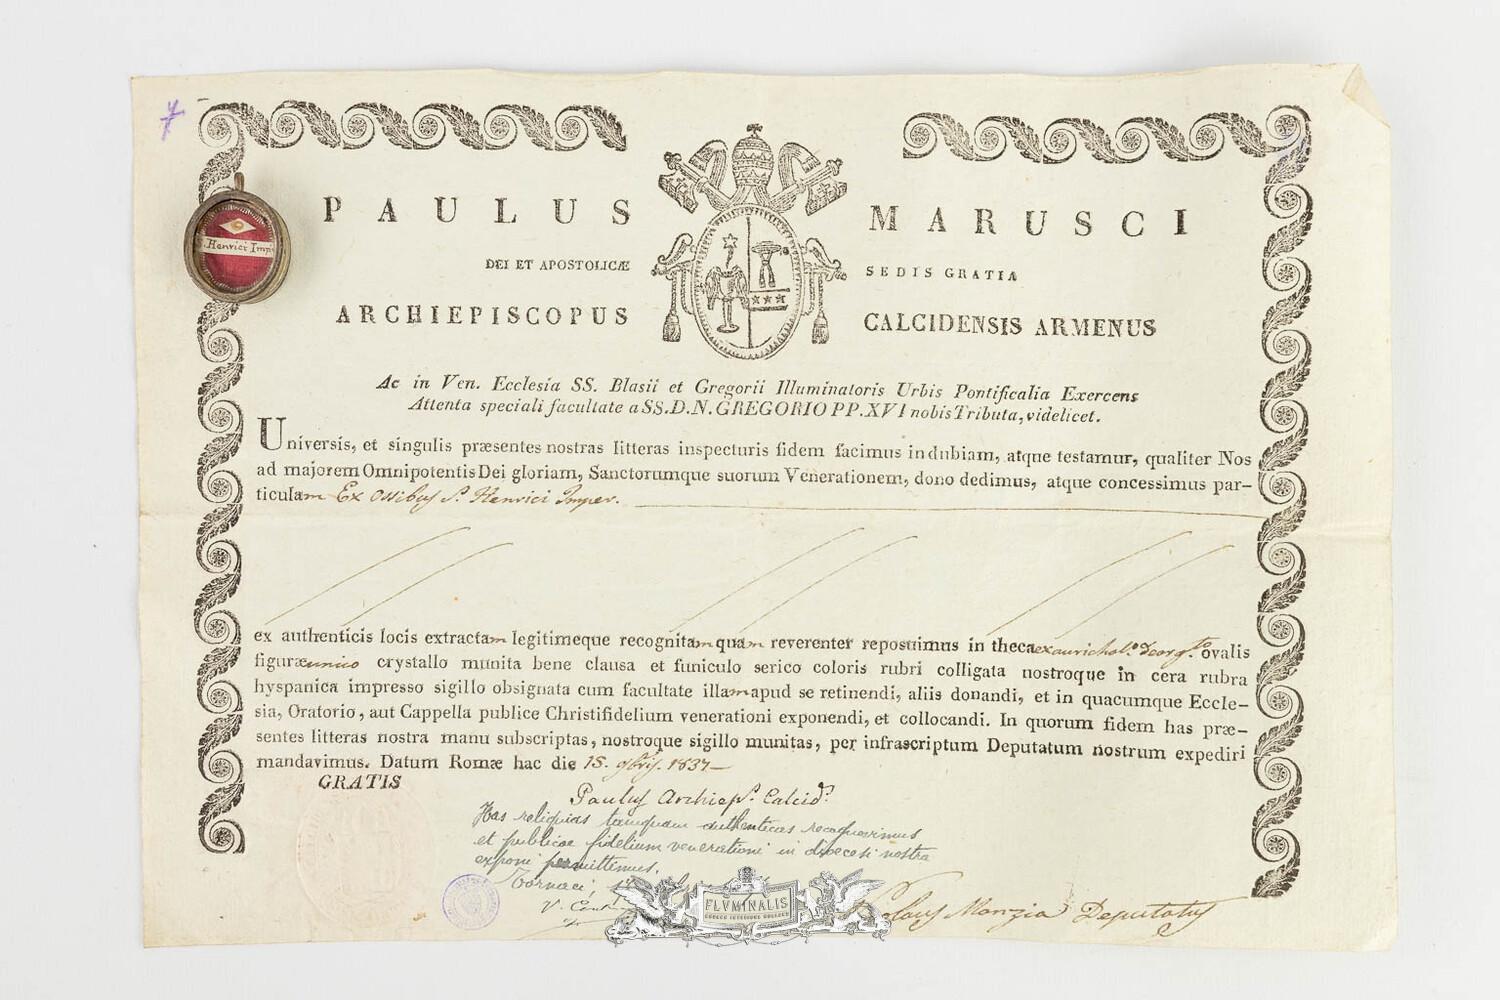 PAULUS MARUSCI
DEI ET APOSTOLICÆ SEDIS GRATIA
ARCHIEPISCOPUS CALCIDENSIS ARMENUS
S. Henrici Imp.
Ac in Ven. Ecclesia SS. Blasii et Gregorii Illuminatoris Urbis Pontificalia Exercens
Attenta speciali facultate a SS.D.N. GREGORIO PP. XVI nobis Tributa, videlicet.
Universis, et singulis præsentes nostras litteras inspecturis fidem facimus indubiam, atque testamur, qualiter Nos
ad majorem Omnipotentis Dei gloriam, Sanctorumque suorum Venerationem, dono dedimus, atque concessimus par-
ticulam Ex Ossibus S. Henrici Imper.
ex authenticis locis extractam legitimeque recognitam quam reverenter reposuimus in theca ex aurichol.o deorg.to ovalis
figuræ unico crystallo munita bene clausa et funiculo serico coloris rubri colligata nostroque in cera rubra
hyspanica impresso sigillo obsignata cum facultate illam apud se retinendi, aliis donandi, et in quacumque Eccle-
sia, Oratorio, aut Cappella publice Christifidelium venerationi exponendi, et collocandi. In quorum fidem has præ-
sentes litteras nostra manu subscriptas, nostroque sigillo munitas, per infrascriptum Deputatum nostrum expediri
mandavimus. Datum Romæ hac die 15. 9bris. 1837
GRATIS
Paulus Archiep.s Calcid.s
Has reliquias tamquam authenticas recognovimus
et publicae fidelium venerationi in dioecesi nostra
exponi permittimus.
Tornaci,
FLVMINALIS
Manzia Deputatus